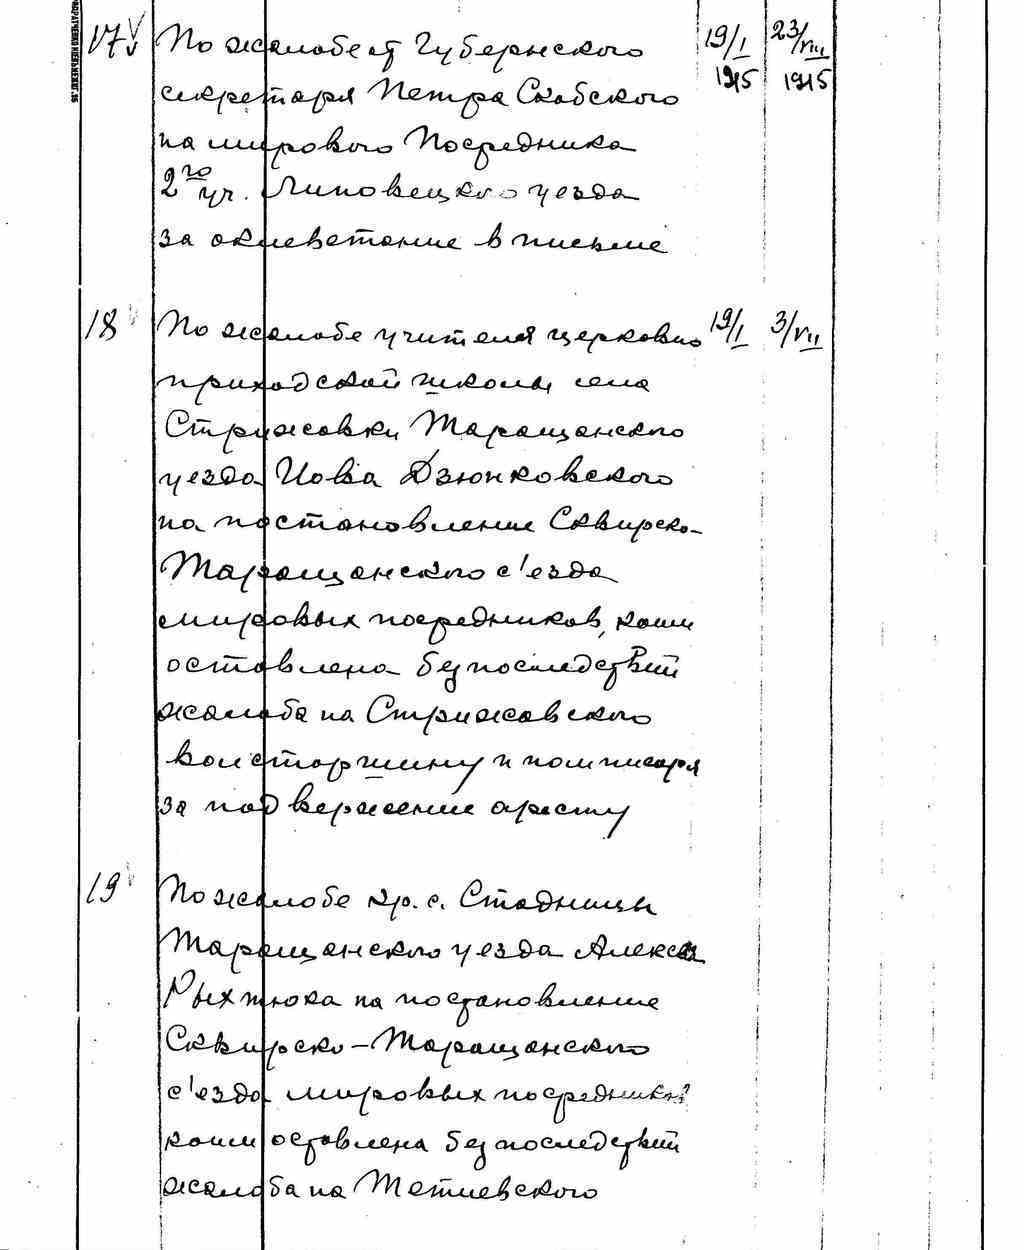 17 По жалобе от Губернского 19/I 23/VIII
секретаря Петра Скабского 1915 1915
на мирового Посредника
2го уч. Липовецкого уезда
за оклеветание в письме
18 По жалобе учителя церковно 19/I 3/VII
приходской школы села
Стрижовки Таращанского
уезда Иова Дзюнковского
на постановление Сквирско-
Таращанского с'езда
мировых посредников, коим
оставлена без последствий
жалоба на Стрижовского
волстаршину и пом писаря
за подвержение аресту
19 По жалобе кр. с. Стадницы
Таращанского уезда Алексея
Рыхтюка на постановление
Сквирско-Таращанского
с'езда мировых посредников
коим оставлена без последствий
жалоба на Тетиевского